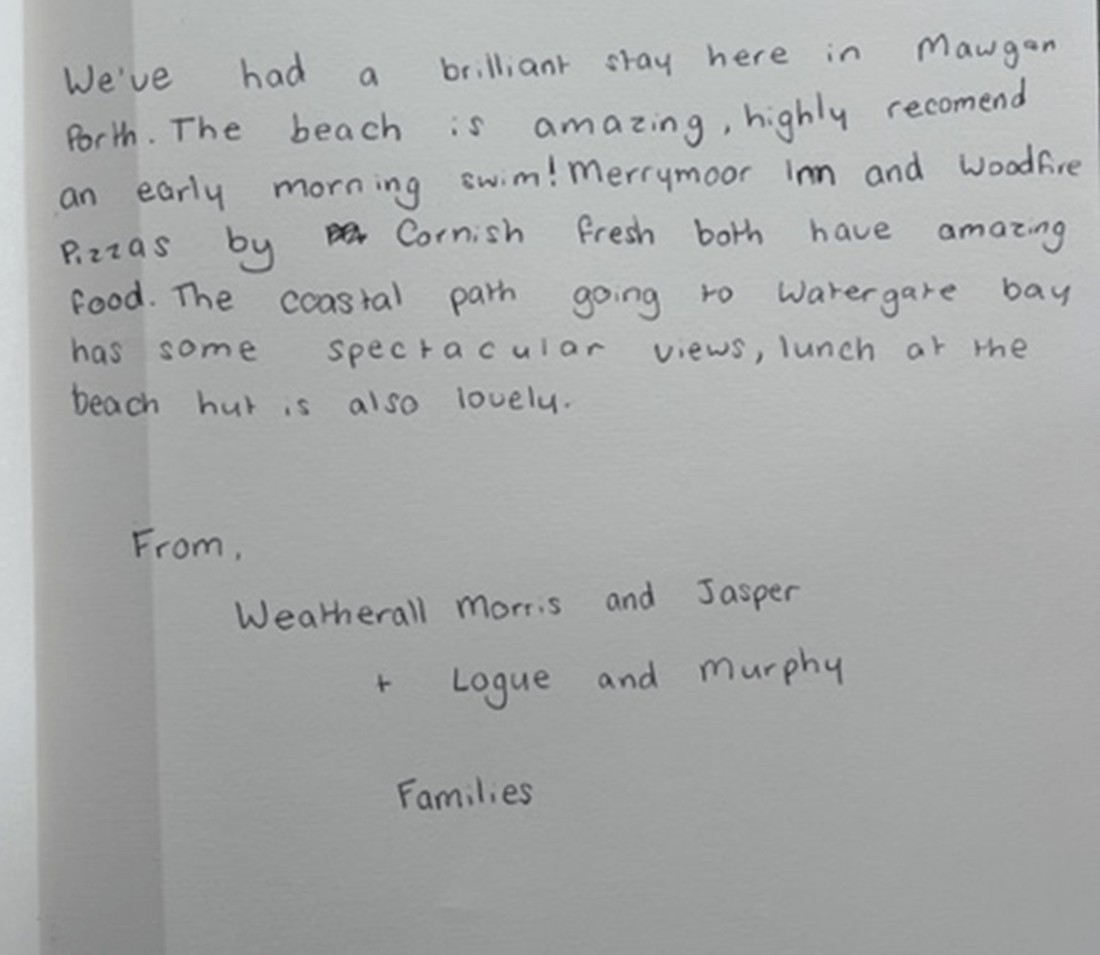 We've had a brilliant stay here in Mawgan
Porth. The beach is amazing, highly recomend
an early morning swim! Merrymoor Inn and Woodfire
Pizzas by Cornish fresh both have amazing
food. The coastal path going to Watergate bay
has some spectacular views, lunch at the
beach hut is also lovely.
From,
Weatherall Morris and Jasper
+ Logue and Murphy
Families